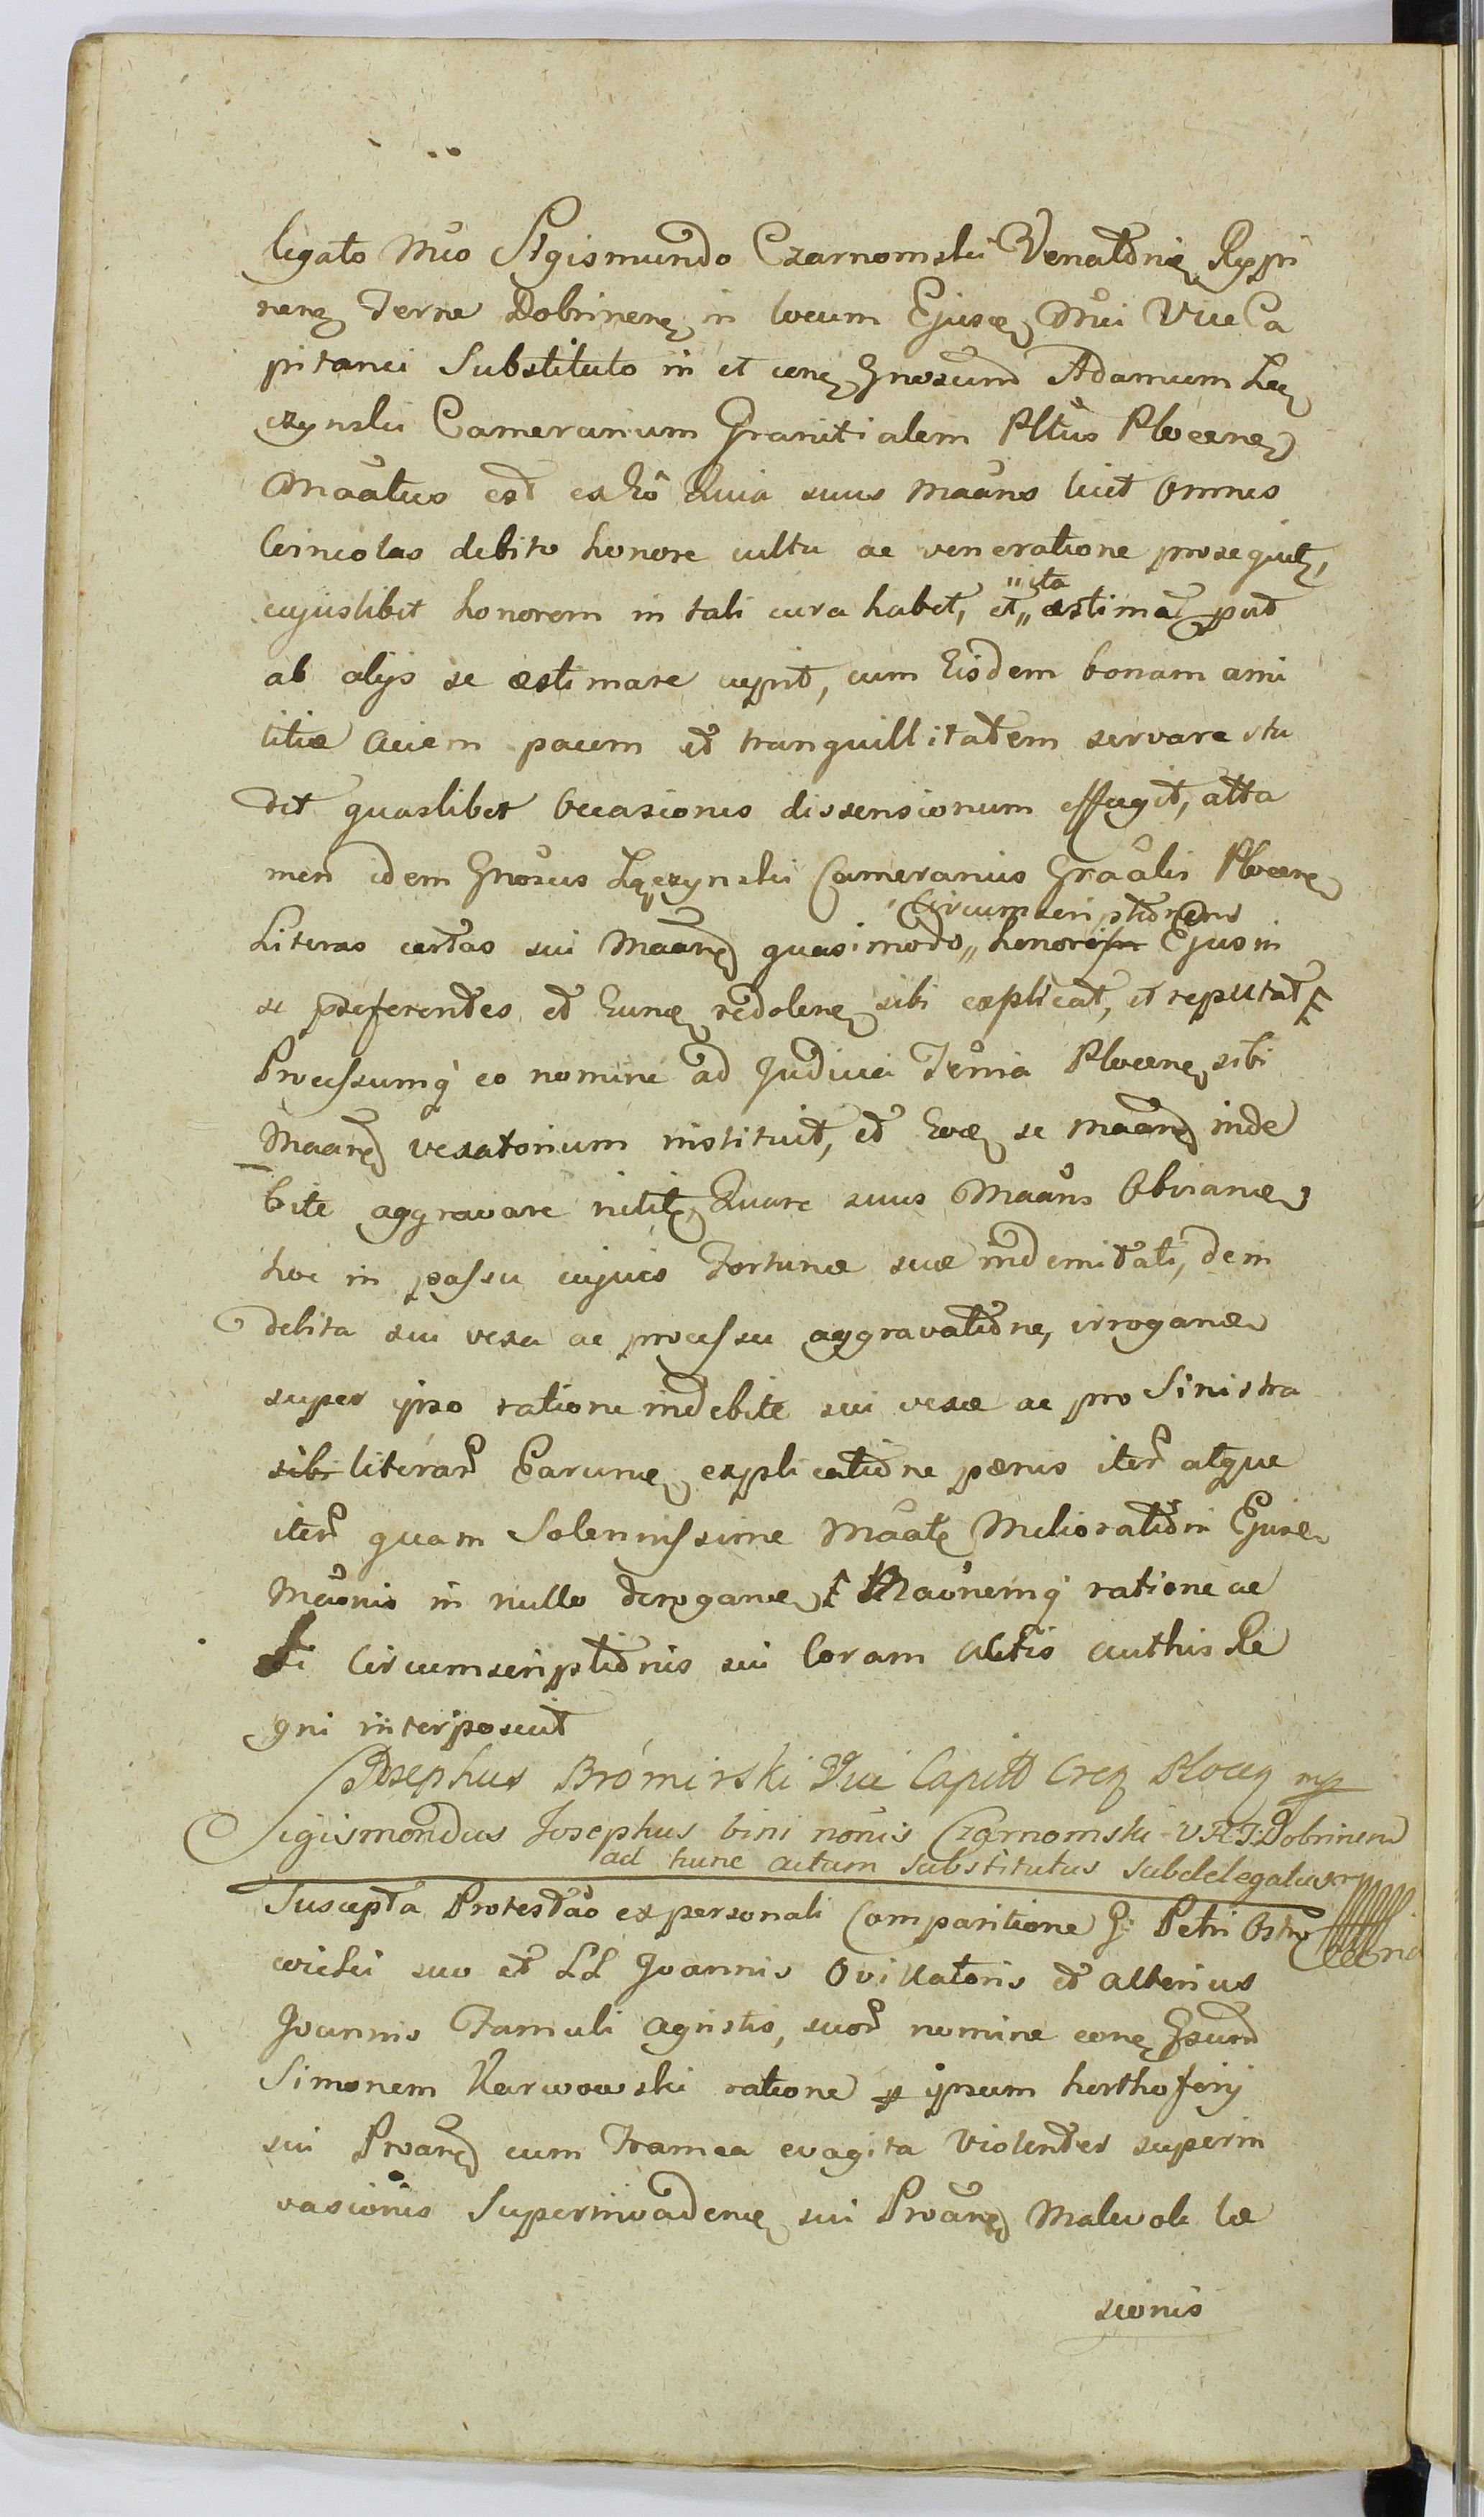 ligato Mco Sigismundo Czarnomski Venatōrię Rypi
nenę Terræ Dobrinenę in locum Ejusdę Mci Vice Ca
pitanei Substituto in et conę Gnosum Adamum Łą
czynski Camerarium Granitialem Pltûs Plocenę
Maātus est ex eo Quia suus Maāns licet Omnes
Coincolas debito honore cultu ac veneratione prosequitę,
cujuslibet honorem in tali cura habet, et „ita æstimaę prt
ab alijs se æstimare cupit, cum Eisdem bonam ami
litiæ aciem pacem et tranquillitatem servare stu
det quaslibet Occasiones dissensionum effugit, atta
men idem Gnosus Łączynski Camerarius Graālis Plocenę
Literas certas sui Maanę quasi modo „ Circumscriptionem honoris Ejus in
se præferentes et Eunę redolenę sibi explicat, et reputat
Processumq̃ eo nomine ad Judicia Trenia Plocenę sibi
Maanę vexatorium instituit, et Eoę se Maanę inde
bite aggravare nititę, Quare suus Maans Obvianę
hoc in passu cujus Fortunæ suæ indemitati, dein
debita sui vexa ac processu aggravatione, irroganę
super ipso ratione indebitæ sui vexæ ac pro Sinistra
sibi literar Earunę explicatione pænis iter atque
iter quam Solennissime Maatę Melioratioñ Ejusę
Mãonis in nullo deroganę Maõnemq̃ ratione ac
ti Circumscriptionis sui Coram Actis authis Re
gni interposuit
Josephus Bromirski Vice Capitt Crcę Plocę mp
Sigismondus Josephus bini nōnis Czarnomski V R T: Dobrinenę
ad hunc actum substitutus subdelegatus mp
Suscepta Protestāo ex personali Comparitione G: Petri Ostro
wicki suo et LL Joannis Ovillatoris et alterius
Joannis Famuli agristis, suor nomine conę Gsum
Simonem Karwowski ratione p ipsum
sui Proanę cum Framea evagita Violenter superin
vasionis Superinvadenę sui Proanę Malevolę læ
sionis